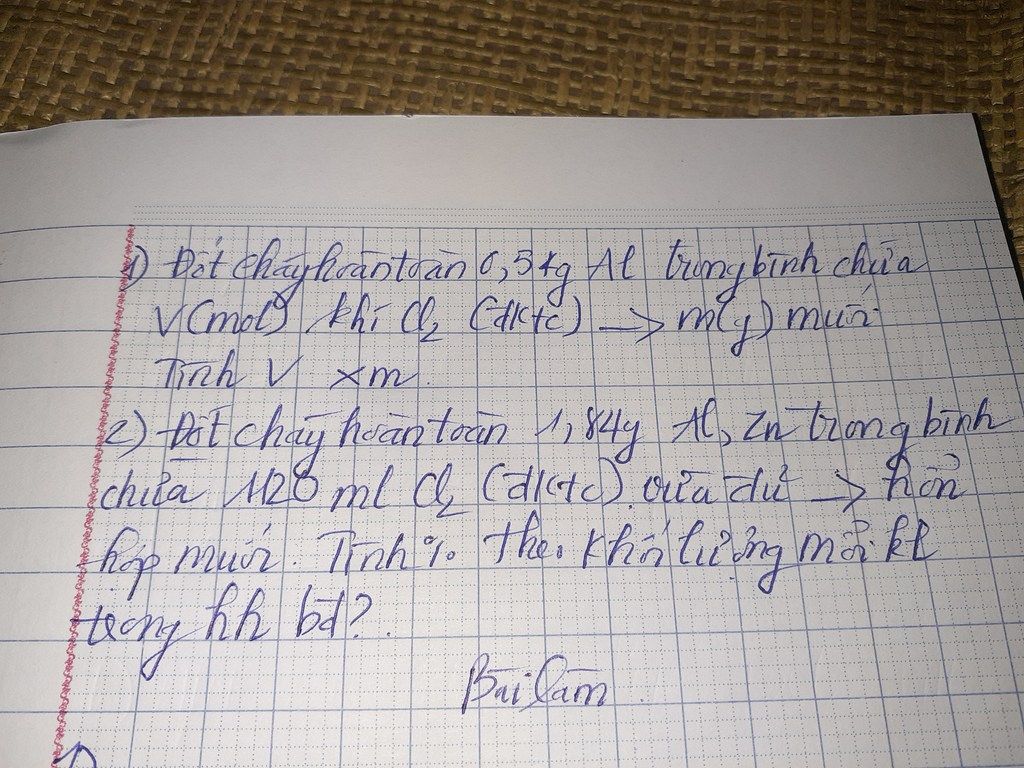 1) Đốt cháy hoàn toàn 0,54g Al trong bình chứa
V(mol) khí Cl2 (đktc) → m(g) muối
Tính V xm.
2) Đốt cháy hoàn toàn 1,84g Al, Zn trong bình
chứa 1120 ml Cl2 (đktc) vừa đủ → hỗn
hợp muối. Tính % theo khối lượng mỗi kl
trong hh bđ?
Bài làm
1)